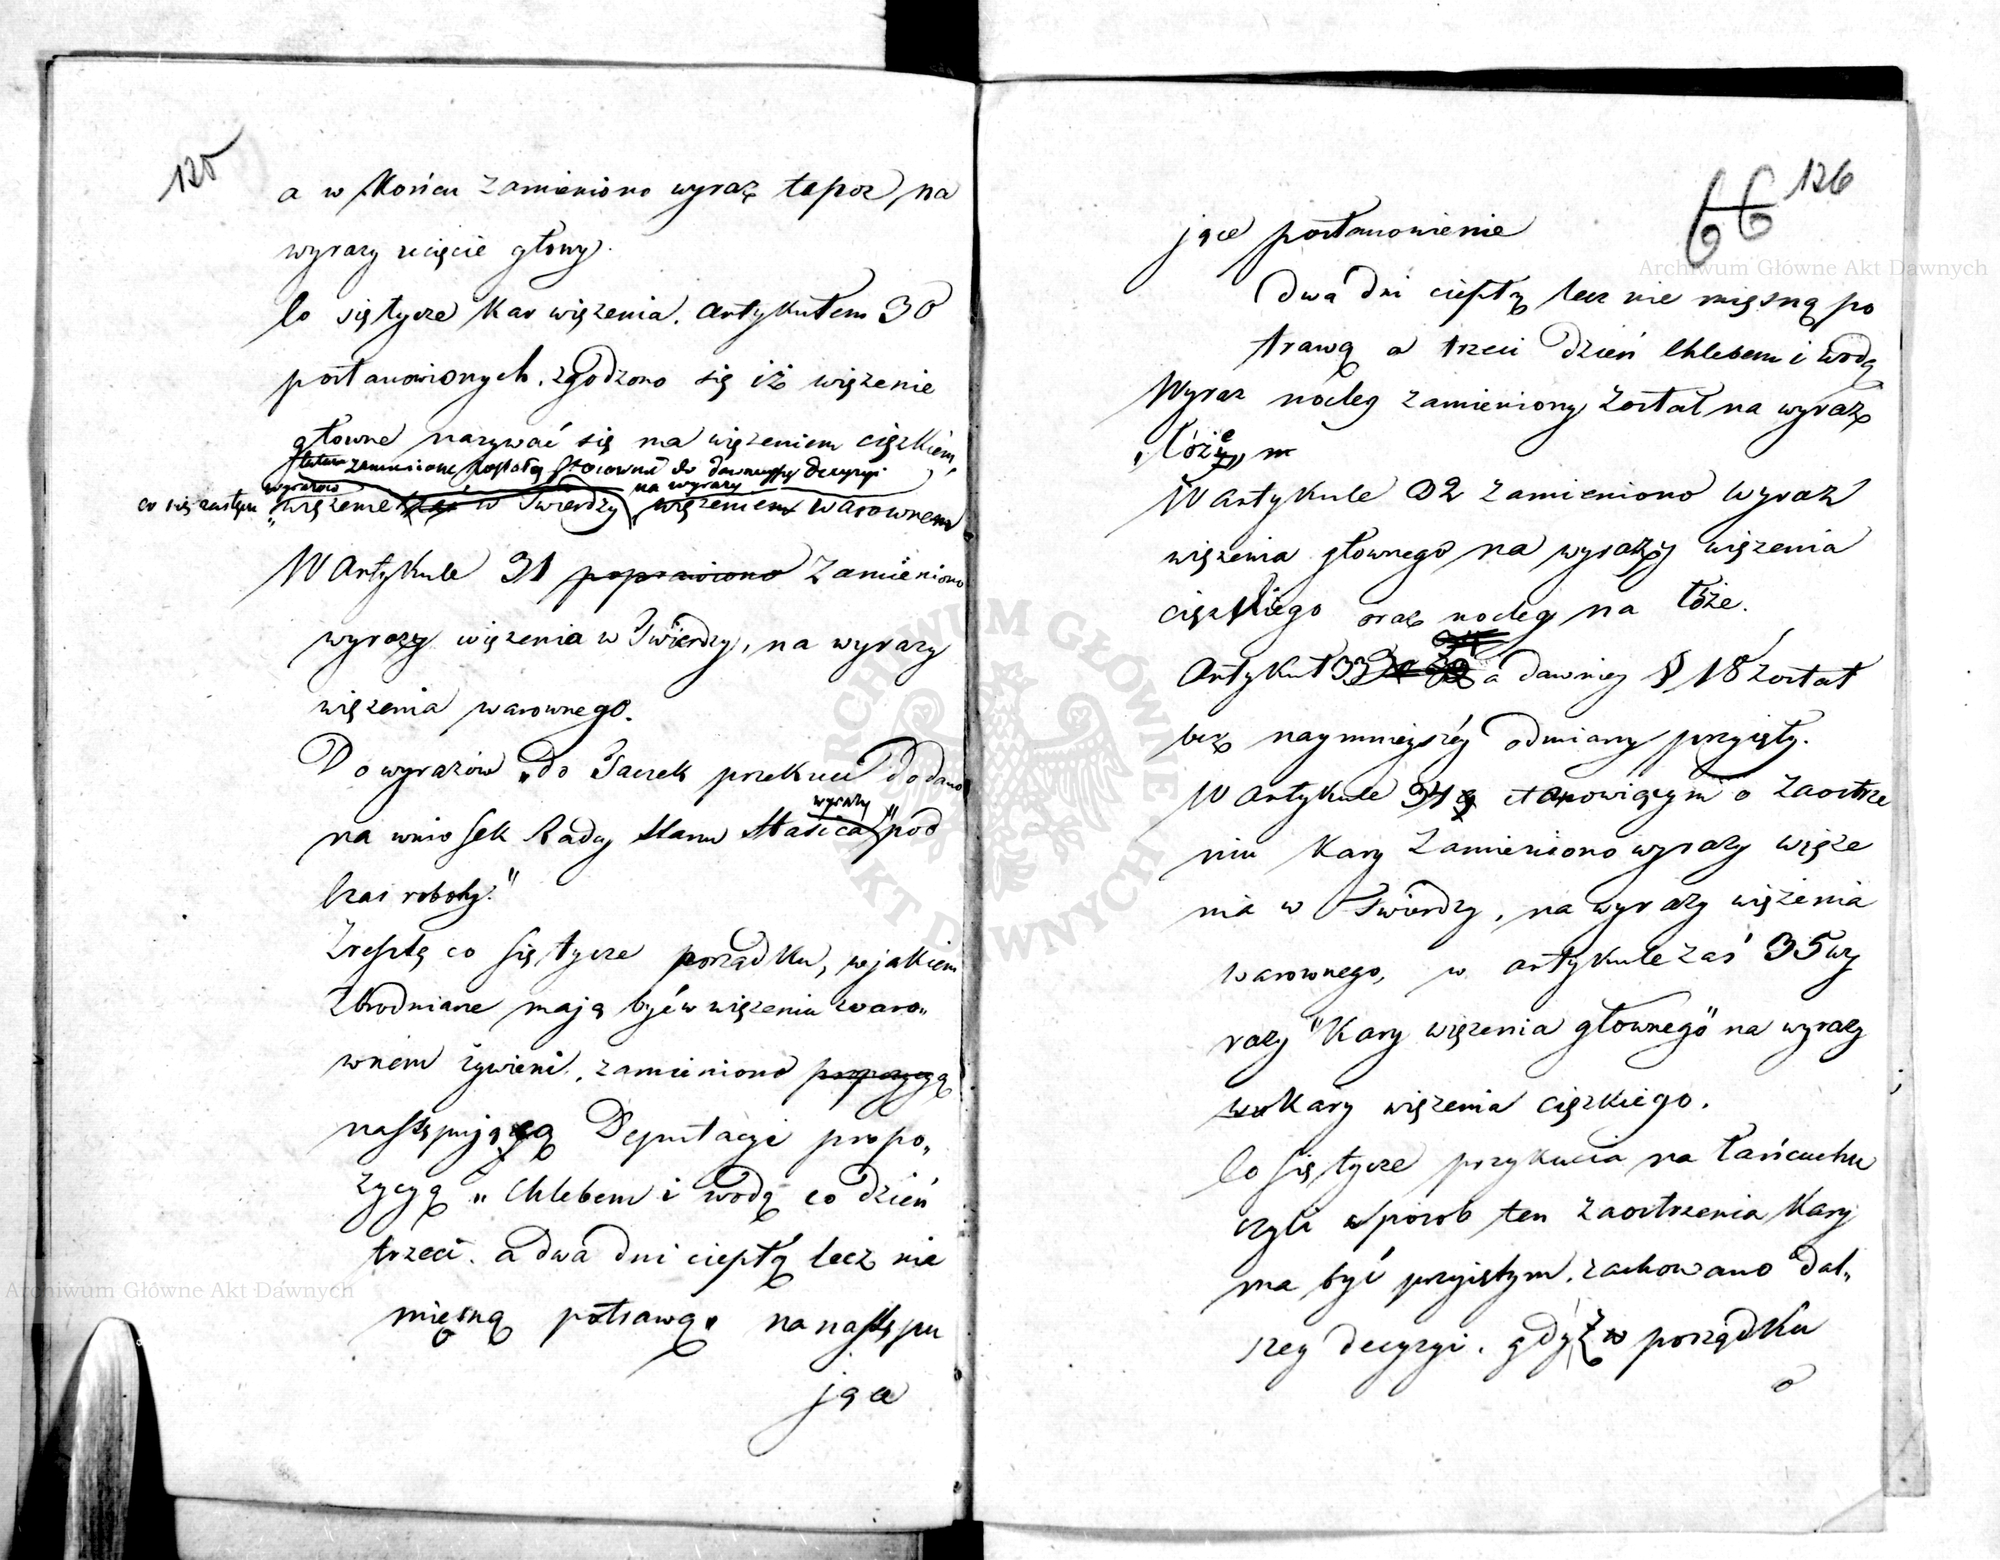 125
a w końcu zamieniono wyraz topor, na
wyrazy ucięcie głowy.
Co się tycze kar więzienia, artykułem 30
postanowionych, zgodzono się iż więzienie
głowne nazywać się ma więzieniem ciężkiem,
zamienione zostały stosownie do dawnieyszey decyzyi
wyrazow na wyrazy
co się zastępu „więzienie w Twierdzy, więzieniem warownem
W Artykule 31 poprawiono zamieniono
wyrazy więzienia w Twierdzy, na wyrazy
więzienia warownego.
Do wyrazów „do Taczek przekuci dodano
wyrazy
na wniosek Radcy Stanu Stasica „pod
czas roboty."
Zresztą co się tycze porządku, w jakiem
Zbrodniarze mają być w więzieniu waro„
wnem żywieni, zamieniono propozycyą
następującą Deputacyi propo„
zycyą „Chlebem i wodą co dzień
trzeci, a dwa dni ciepłą lecz nie
mięsną potrawą" na nastę pu
jące
66 126
jące postanowienie
Dwa dni ciepłą lecz nie mięsną po
trawą a trzeci dzień Chlebem i wodą
Wyraz nocleg zamieniony został na wyraz
„łóże„
W artykule 32 zamieniono wyraz
więzienia głownego na wyrazy więzienia
ciężkiego oraz nocleg na łóże.
Artykuł 33 a dawniey § 18 został
bez naymnieyszéy odmiany przyięty.
W artykule 34 stanowiącym o zaostrze
niu kary zamieniono wyrazy więzie
nia w Twierdzy, na wyrazy więzienia
warownego, w artykule zaś 35 wy
razy "kary więzienia głownego" na wyrazy
kary więzienia ciężkiego.
Co się tycze przykucia na łańcuchu
czyli sposob ten zaostrzenia kary
ma być przyiętym, zachowano dal„
szey decyzyi, gdyż w porządku
o
Archiwum Główne Akt Dawnych
Archiwum Główne Akt Dawnych
ARCHIWUM GŁÓWNE AKT DAWNYCH